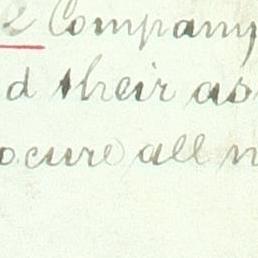 2 Company
d their as
ocure all n